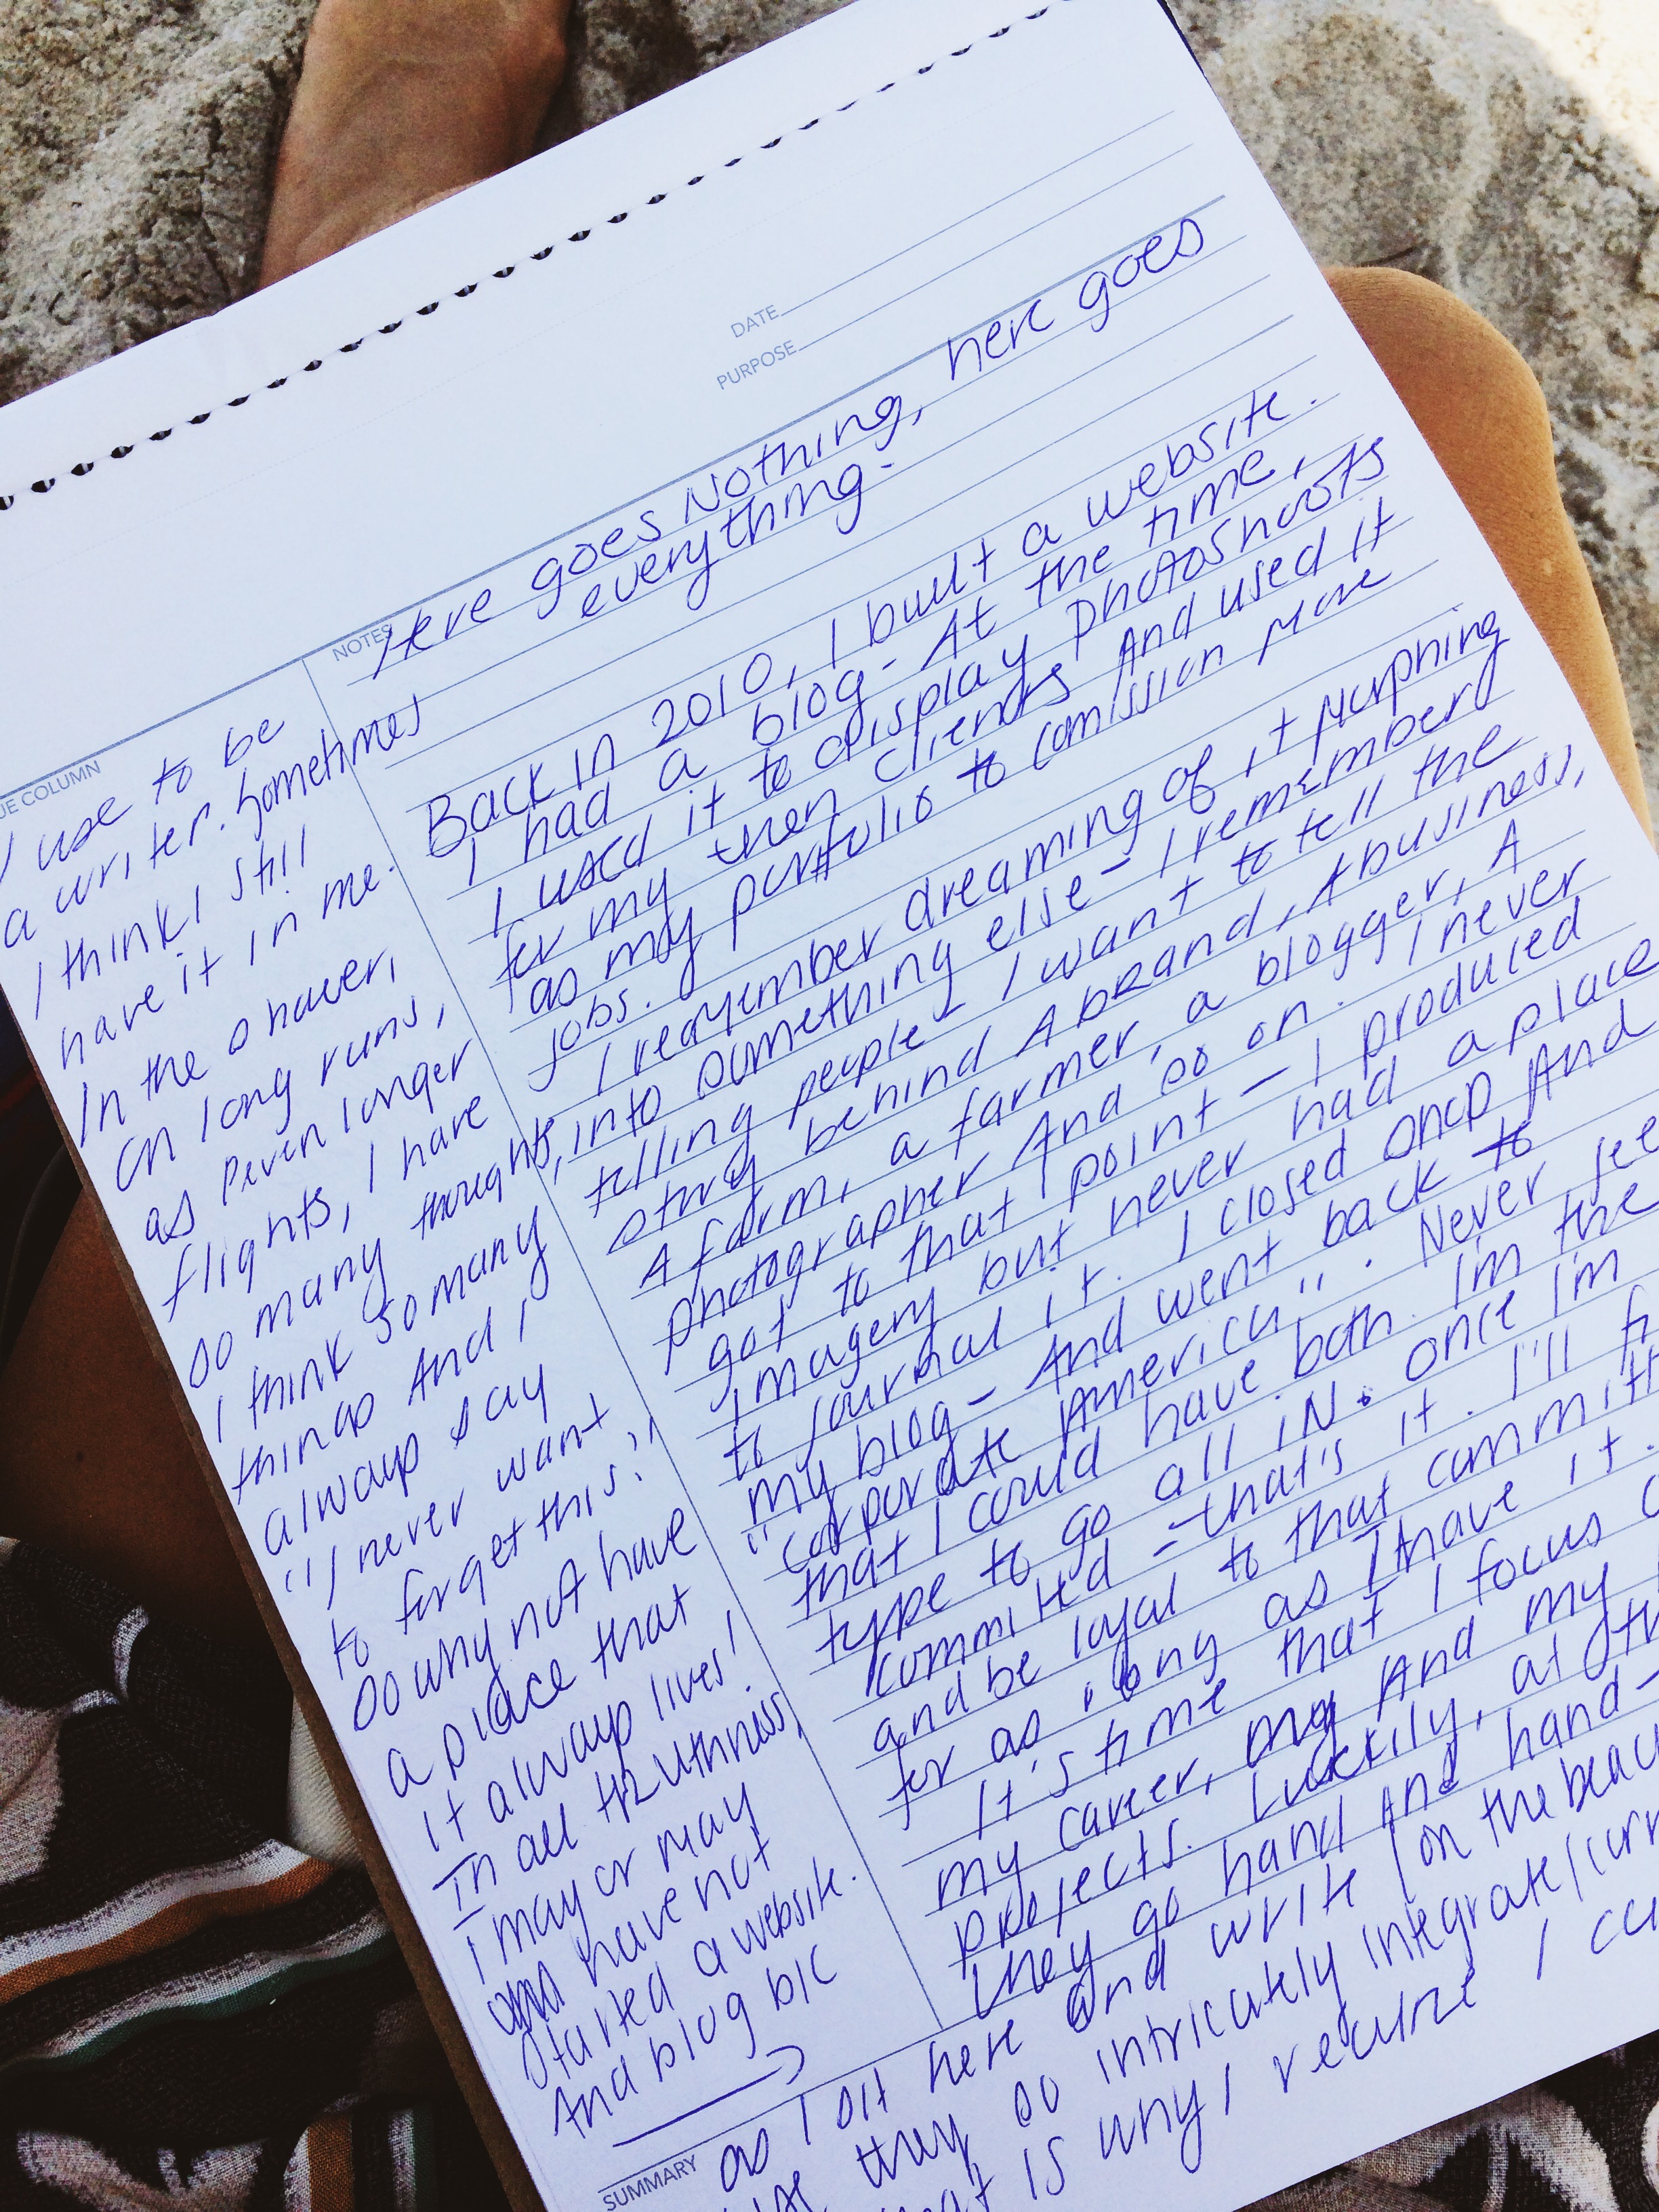 DATE
PURPOSE
NOTES
Here goes Nothing, here goes
everything.
Back In 2010, I built a website.
I had a blog - At the time,
I used it to display photoshoots
for my then clients And used it
as my portfolio to comission more
jobs.
I remember dreaming of it Morphing
into something else - I remember
telling people I want to tell the
story behind A brand, A business,
A farm, a farmer, a blogger, A
photographer And so on. I never
got to that point - I produced
imagery but never had a place
to journal it. I closed And
my blog - And went back to
"corporate America". Never
that I could have both. I'm the
type to go all iN. once I'm
committed - that's it. I'll
and be loyal to that
for as long as I have it.
It's time that I focus
my career, And my
projects. Luckily, at
they go hand And hand -
as I sit here and write / on the
they so intricately integrate /
is why I realize I
CUE COLUMN
I use to be
a writer. Sometimes
I think I still
have it in me.
In the shower,
on long runs,
as even longer
flights, I have
so many thoughts,
I think so many
things And I
always say
"I never want
to forget this",
so why not have
a place that
it always lives!
In all truthness,
I may or may
have not
started a website.
And blog b/c
SUMMARY